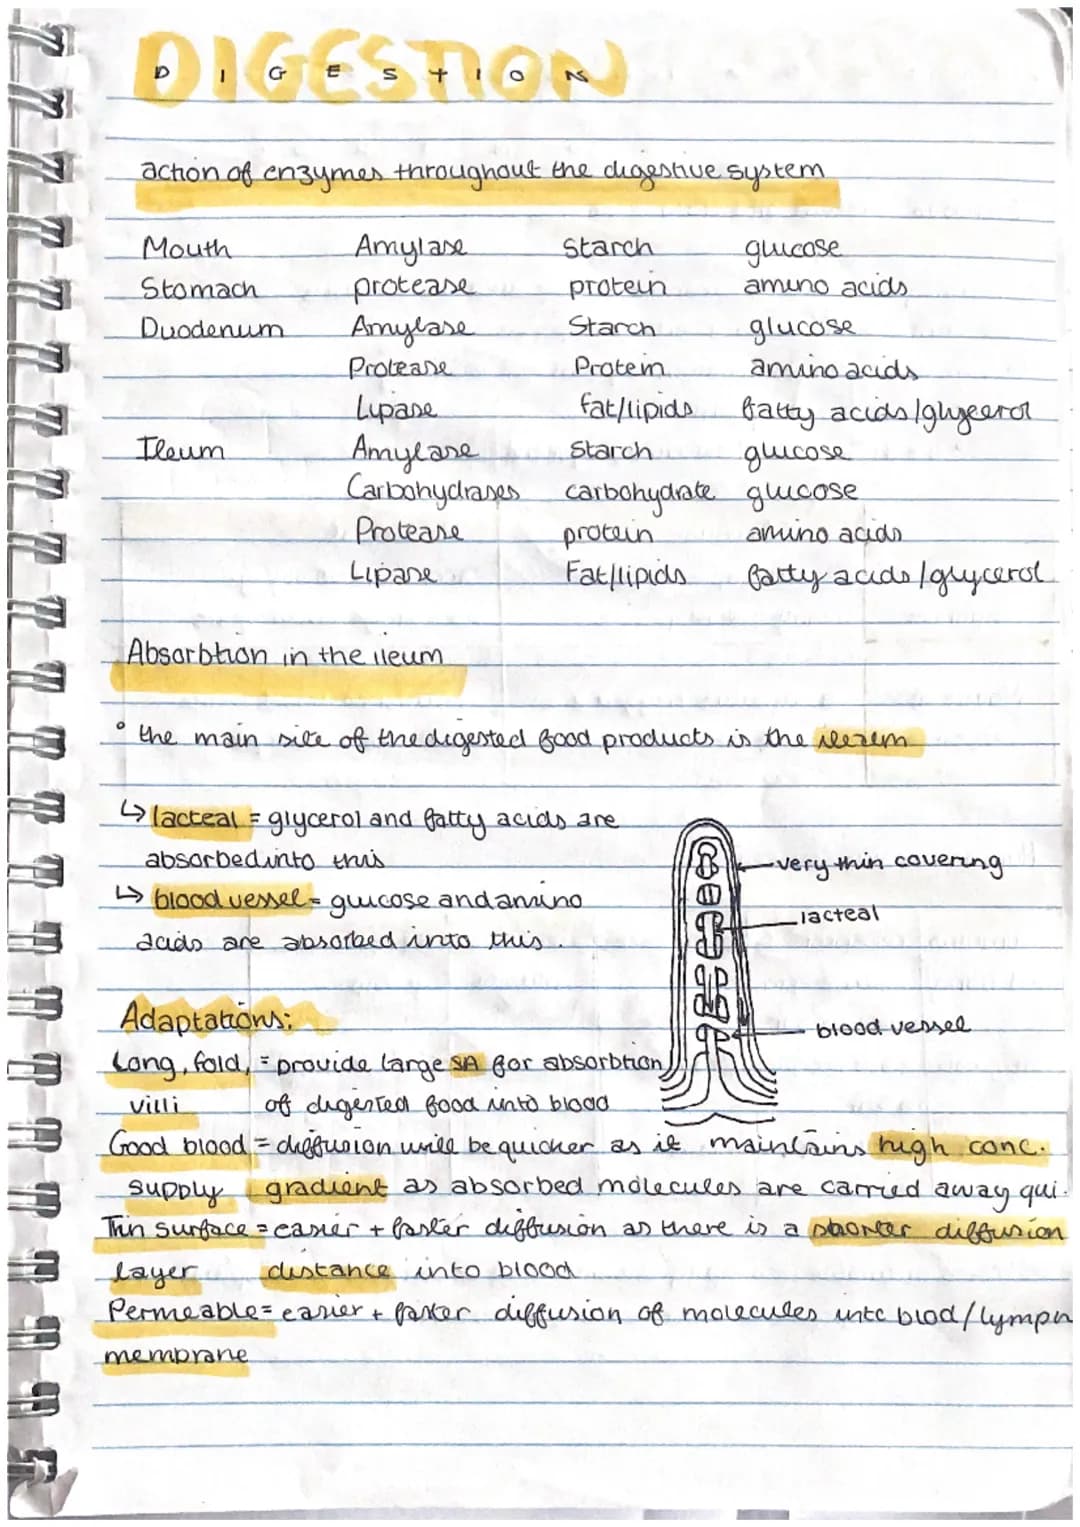 DIGESTION
DIGESTION
action of enzymes throughout the digestive system
Mouth Amylase Starch glucose
Stomach protease protein amino acids
Duodenum Amylase Starch glucose
Protease Protein amino acids
Lipase fat/lipids fatty acids/glycerol
Ileum Amylase Starch glucose
Carbohydrases carbohydrate glucose
Protease protein amino acids
Lipase Fat/lipids fatty acids/glycerol
Absorbtion in the ileum
° the main site of the digested food products is the
↳ lacteal = glycerol and fatty acids are
absorbed into this
↳ blood vessel = glucose and amino
acids are absorbed into this.
very thin covering
lacteal
blood vessel
Adaptations:
Long, fold, = provide large SA for absorbtion
villi of digested food into blood
Good blood = diffusion will be quicker as it maintains high conc.
supply gradient as absorbed molecules are carried away qui.
Thin surface = easier + faster diffusion as there is a shorter diffusion
layer distance into blood
Permeable = easier + faster diffusion of molecules into blod/lymph
membrane